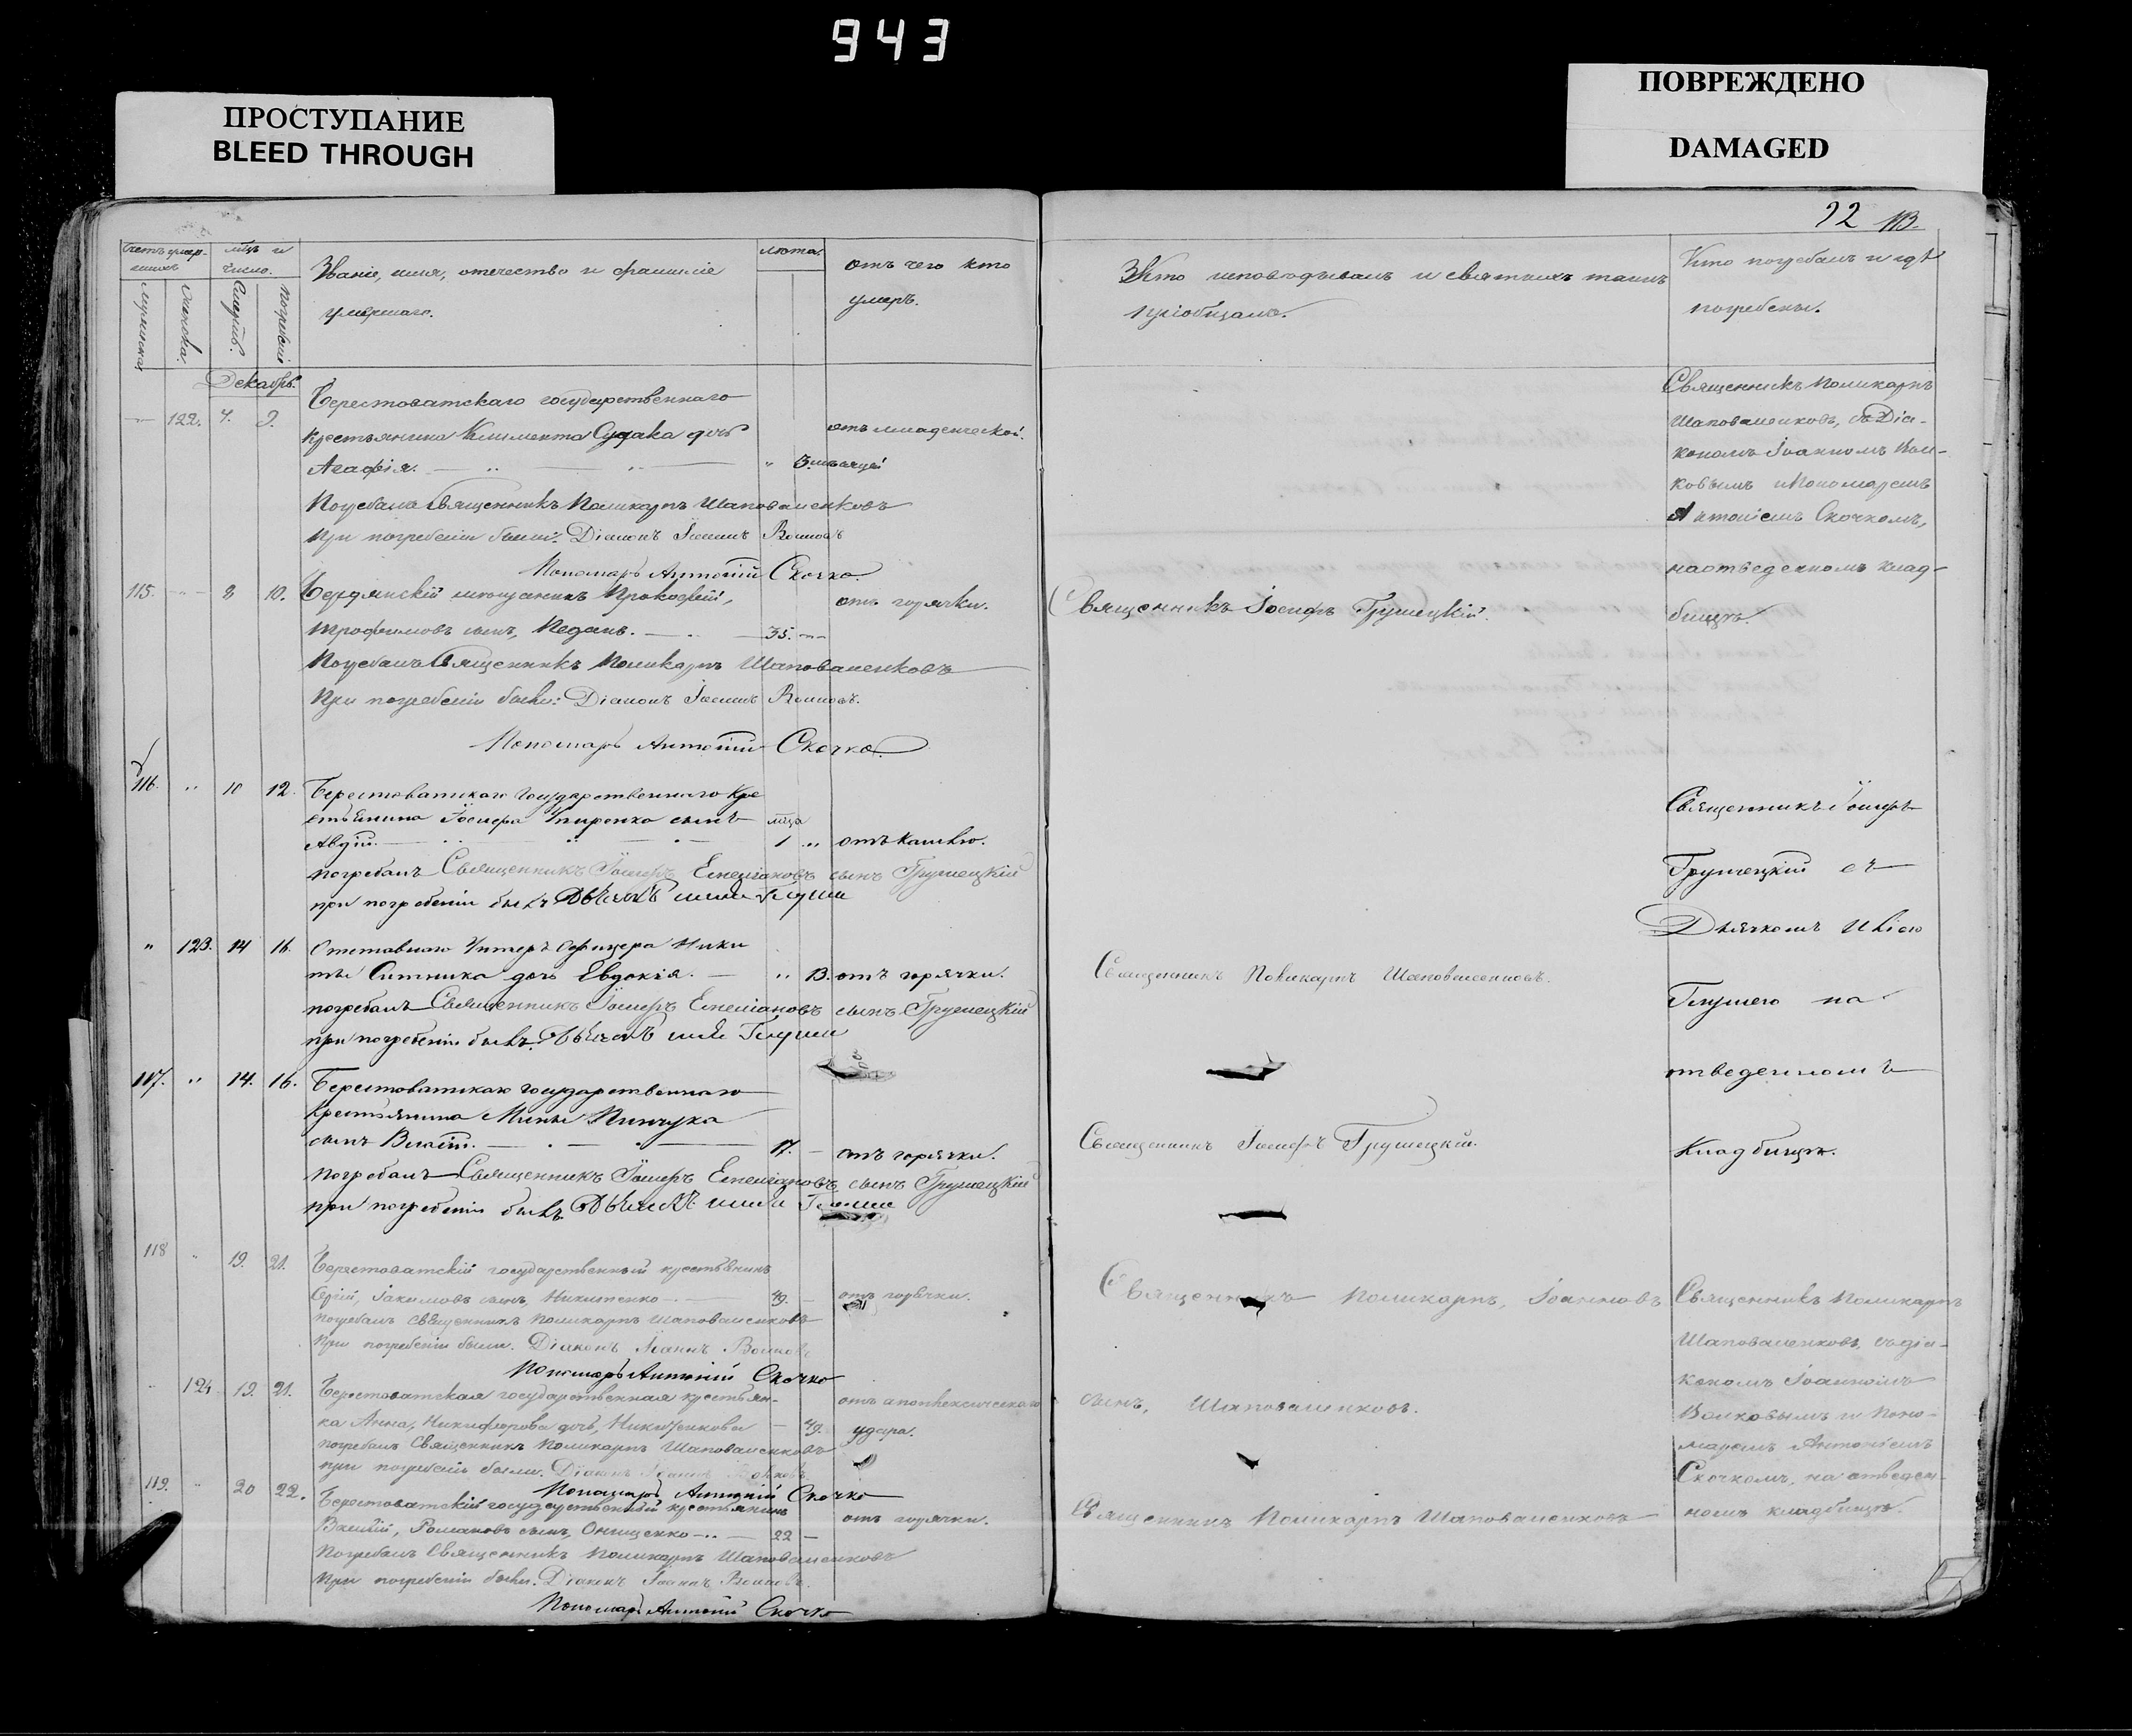 943
ПРОСТУПАНИЕ
BLEED THROUGH
ПОВРЕЖДЕНО
DAMAGED
Счетъ умер-
шихъ
мѣс. и
число.
Званіе, имя, отечество и фамилія
умершаго.
лѣта.
отъ чего кто
умеръ.
Мужеска.
Женска.
Смерти.
Погребенія
Декабрь.
122. 7. 9.
Берестоватскаго государственнаго
крестьянина Климента Судака дочь
Агафія.
3. мѣсяцей
отъ младенческой.
Погребалъ Священникъ Поликарпъ Шаповаленковъ
При погребеніи были: Діаконъ Іоаннъ Волковъ
Пономарь Антоній Скочко.
115. 8 10.
Бердянскій мѣщанинъ Прокофій,
Трофимовъ сынъ, Педанъ.
35.
отъ горячки.
Погребалъ Священникъ Поликарпъ Шаповаленковъ
При погребеніи были: Діаконъ Іоаннъ Волковъ.
Пономарь Антоній Скочко.
116. 10 12.
Берестоватскаго государственнаго кре
стьянина Іосифа сынъ
Авдій.
мѣца
1
отъ кашлю.
погребалъ Священникъ Іосифъ Емеліановъ сынъ Грушецкій
при погребеніи былъ
123. 14 16.
Отставнаго Унтеръ Офицера Ники
ты Ситника дочь Евдокія.
13.
отъ горячки.
погребалъ Священникъ Іосифъ Емеліановъ сынъ Грушецкій
при погребеніи былъ
117. 14. 16.
Берестоватскаго государственнаго
крестьянина Мины Пинчука
сынъ
17.
отъ горячки.
погребалъ Священникъ Іосифъ Емеліановъ сынъ Грушецкій
при погребеніи былъ
118 19. 21.
Берестоватскій государственный крестьянинъ
Сергій, Іакимовъ сынъ, Никитенко
49.
отъ горячки.
Погребалъ Священникъ Поликарпъ Шаповаленковъ
При погребеніи были. Діаконъ Іоаннъ Волковъ
Пономарь Антоній Скочко
124 19. 21.
Берестоватская государственная крестьян-
ка Анна, Никифорова дочь,
49.
отъ апоплексическаго
удара.
погребалъ Священникъ Поликарпъ Шаповаленковъ
при погребеніи были. Діаконъ Іоаннъ Волковъ
Пономарь Антоній Скочко
119. 20 22.
Берестоватскій государственный крестьянинъ
Василій, Романовъ сынъ, Онищенко
22
отъ горячки.
Погребалъ Священникъ Поликарпъ Шаповаленковъ
При погребеніи были. Діаконъ Іоаннъ Волковъ.
Пономарь Антоній Скочко
113.
Кто исповѣдывалъ и святыхъ таинъ
пріобщалъ.
Кто погребалъ и гдѣ
погребены.
Священникъ Поликарпъ
Шаповаленковъ, съ Діа-
кономъ Іоанномъ Вол-
ковымъ и Пономаремъ
Антоніемъ Скочкомъ,
на отведенномъ клад-
бищѣ.
Священникъ Іосифъ Грушецкій.
Священникъ Іосифъ
Грушецкій съ
Дьячкомъ Иліею
на
отведенномъ
Кладбищѣ.
Священникъ Поликарпъ Шаповаленковъ.
Священникъ Іосифъ Грушецкій.
Священникъ Поликарпъ, Іоанновъ
сынъ, Шаповаленковъ.
Священникъ Поликарпъ Шаповаленковъ
Священникъ Поликарпъ
Шаповаленковъ, съ діа-
кономъ Іоанномъ
Волковымъ и Поно-
маремъ Антоніемъ
Скочкомъ, на отведен-
номъ кладбищѣ.